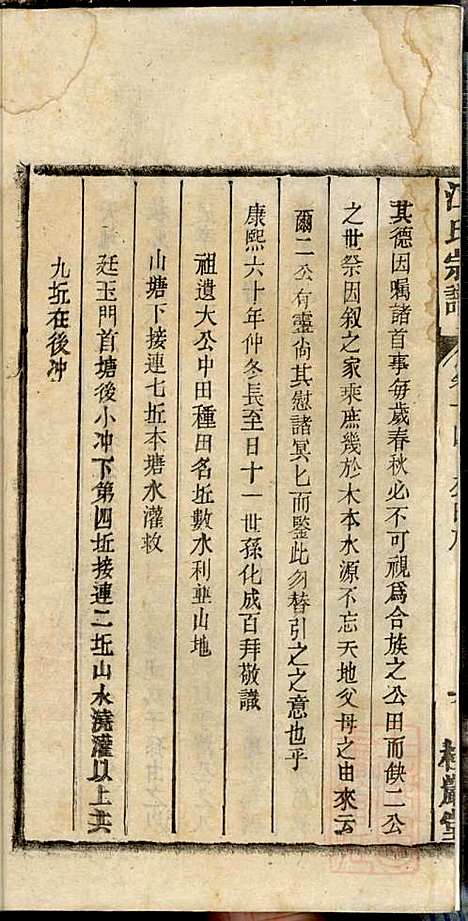 江氏宗譜
其德因嘱諸首事每歲春秋必不可視爲合族之公田而缺二公
之世祭因叙之家乘庶幾於木本水源不忘天地父母之由來云
爾二公有靈尚其慰諸冥匕而鑒此勿替引之之意也乎
康熙六十年仲冬長至日十一世孫化成百拜敬識
祖遺大公中田種田名坵數水利並山地
山塘下接連七坵本塘水灌救
廷玉門首塘後小冲下第四坵接連二坵山水澆灌以上共
九坵在後冲